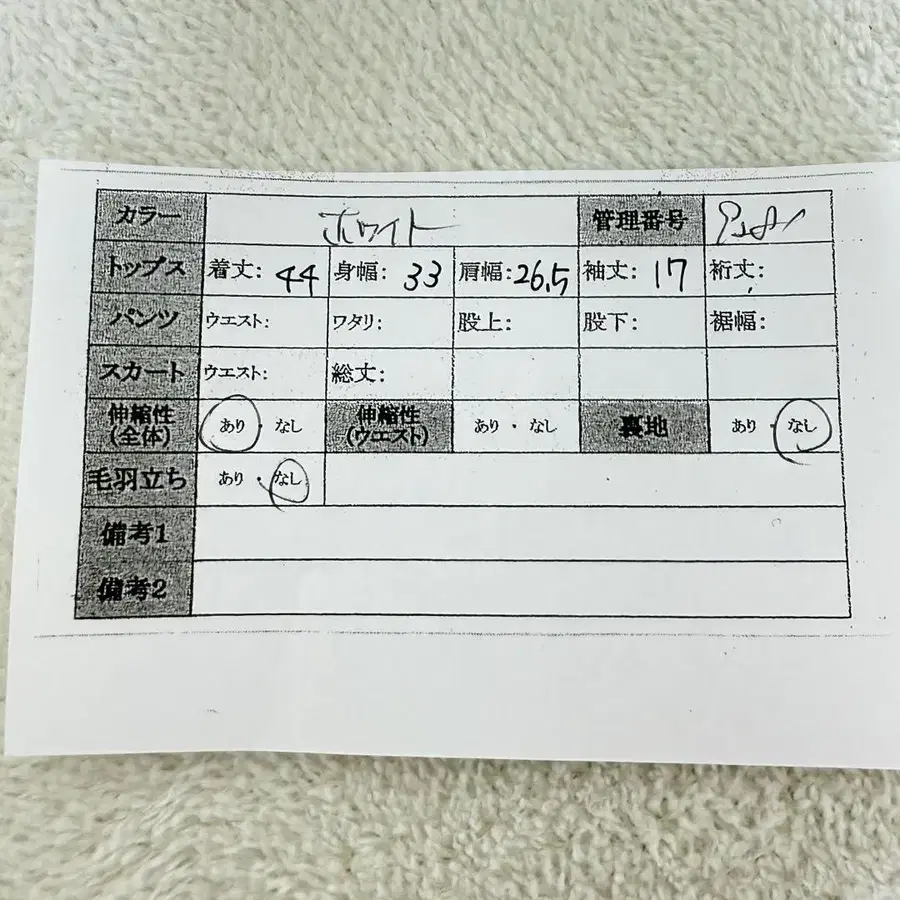 カラー ホワイト 管理番号
トップス 着丈: 44 身幅: 33 肩幅: 26.5 袖丈: 17 裄丈:
パンツ ウエスト: ワタリ: 股上: 股下: 裾幅:
スカート ウエスト: 総丈:
伸縮性(全体) あり・なし 伸縮性(ウエスト) あり・なし 裏地 あり・なし
毛羽立ち あり・なし
備考1
備考2